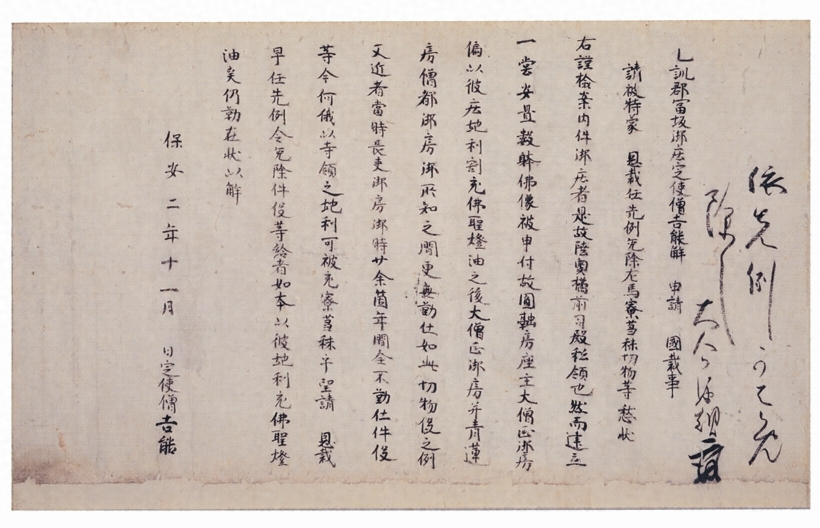 依先例可令免
除之 大介源朝臣
乙訓郡冨坂御庄定使僧吉能解 申請 國裁事
請被特蒙 恩裁任先例免除左馬寮蒭秣切物等愁状
右謹檢案内件御庄者是故陸奥橘前司殿私領也然而建立
一堂安置數躰佛像被申付故圓融房座主大僧正御房
偏以彼庄地利割充佛聖燈油之後大僧正御房并青蓮
房僧都御房御所知之間更無勤仕如此切物役之例
又近者當時長吏御房御時廿余箇年間全不勤仕件役
等今何俄以寺領之地利可被充寮蒭秣乎望請 恩裁
早任先例令免除件役等給者如本以彼地利充佛聖燈
油矣仍勒在状以解
保安二年十一月 日定使僧吉能